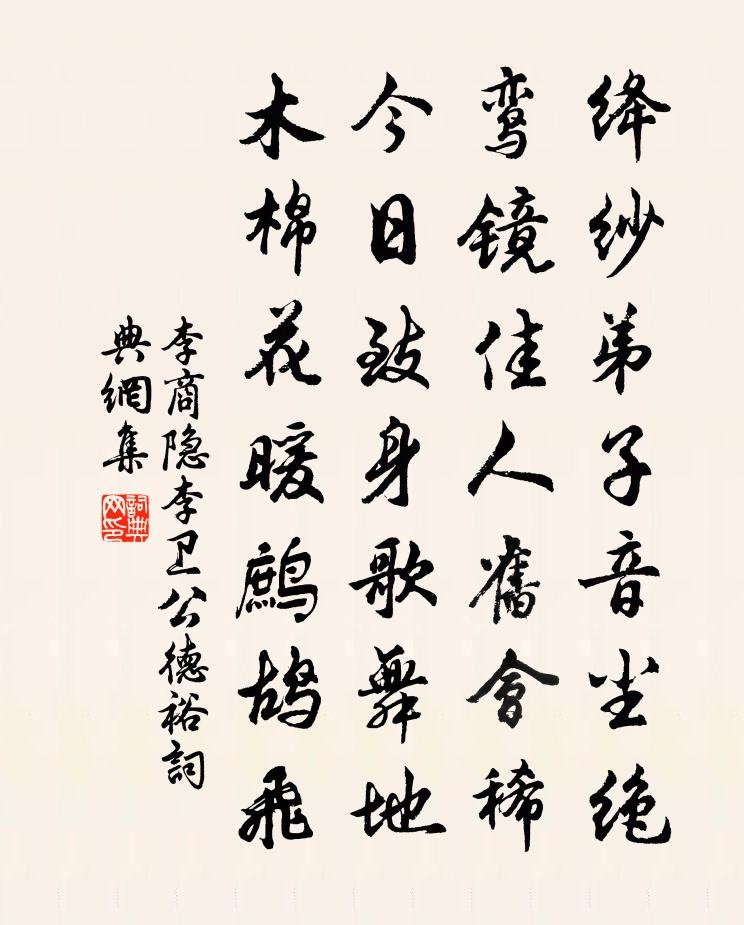 绛纱弟子音尘绝
鸾镜佳人舊會稀
今日致身歌舞地
木棉花暖鹧鸪飛
李商隐李卫公德裕詞
典網集
詞典网印